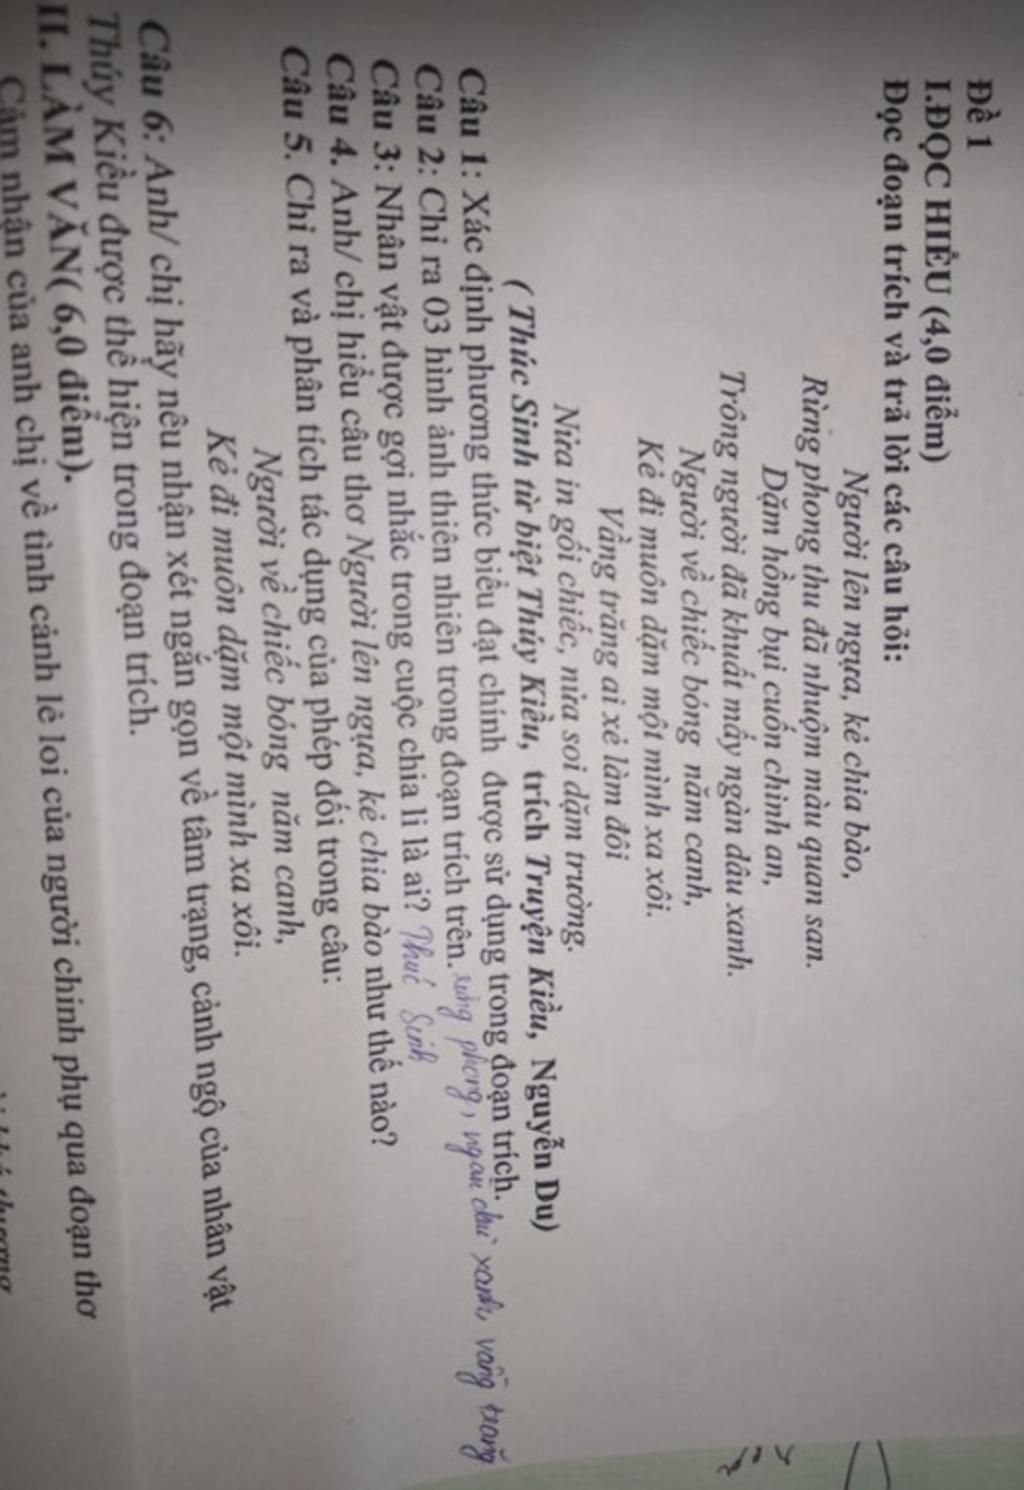 Đề 1
I.ĐỌC HIỂU (4,0 điểm)
Đọc đoạn trích và trả lời các câu hỏi:
Người lên ngựa, kẻ chia bào,
Rừng phong thu đã nhuộm màu quan san.
Dặm hồng bụi cuốn chinh an,
Trông người đã khuất mấy ngàn dâu xanh.
Người về chiếc bóng năm canh,
Kẻ đi muôn dặm một mình xa xôi.
Vầng trăng ai xẻ làm đôi
Nửa in gối chiếc, nửa soi dặm trường.
( Thúc Sinh từ biệt Thúy Kiều, trích Truyện Kiều, Nguyễn Du)
Câu 1: Xác định phương thức biểu đạt chính được sử dụng trong đoạn trích.
Câu 2: Chỉ ra 03 hình ảnh thiên nhiên trong đoạn trích trên. rừng phong, ngàn dâu xanh, vầng trăng
Câu 3: Nhân vật được gợi nhắc trong cuộc chia li là ai? Thúc Sinh
Câu 4. Anh/ chị hiểu câu thơ Người lên ngựa, kẻ chia bào như thế nào?
Câu 5. Chỉ ra và phân tích tác dụng của phép đối trong câu:
Người về chiếc bóng năm canh,
Kẻ đi muôn dặm một mình xa xôi.
Câu 6: Anh/ chị hãy nêu nhận xét ngắn gọn về tâm trạng, cảnh ngộ của nhân vật
Thúy Kiều được thể hiện trong đoạn trích.
II. LÀM VĂN( 6,0 điểm).
Cảm nhận của anh chị về tình cảnh lẻ loi của người chinh phụ qua đoạn thơ